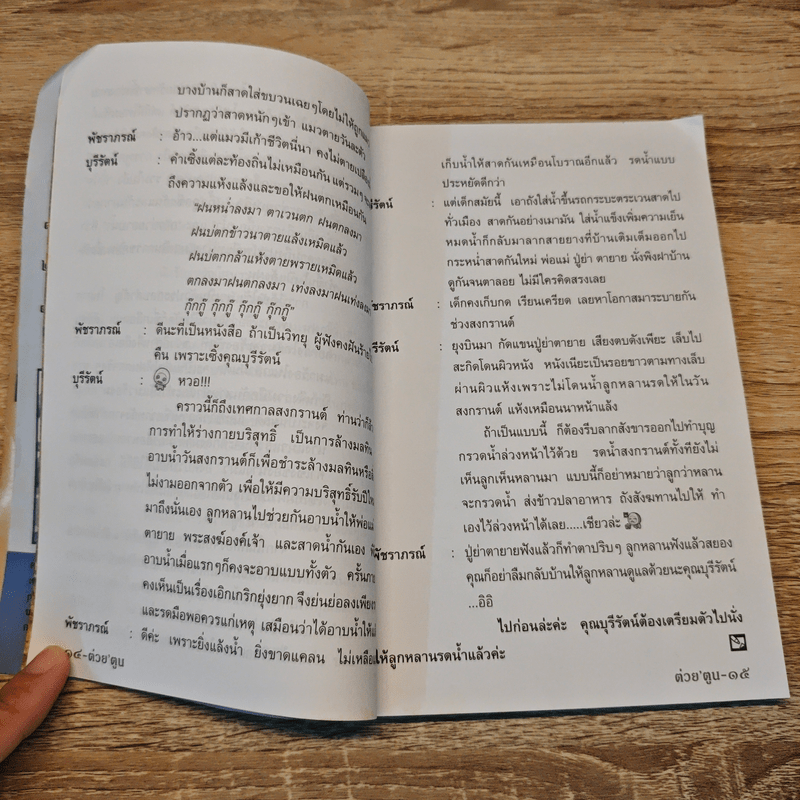 บางบ้านก็สาดใส่ขบวนเฉยๆโดยไม่ให้ถูก
ปรากฏว่าสาดหนักๆเข้า แมวตายวันละตัว
พัชราภรณ์ : อ้าว...แต่แมวมีเก้าชีวิตนี่นา คงไม่ตาย
บุรีรัตน์ : คำเซิ้งแต่ละท้องถิ่นไม่เหมือนกัน แต่รวมๆ
ถึงความแห้งแล้งและขอให้ฝนตกเหมือนกัน
"ฝนหน่ำลงมา ตาเวนตก ฝนตกลงมา
ฝนบ่ตกข้าวนาตายแล้งเหมิดแล้ว
ฝนบ่ตกกล้าแห้งตายพรายเหมิดแล้ว
ตกลงมาฝนตกลงมา เท่งลงมาฝนเท่งลง
กุ๊กกู๊ กุ๊กกู๊ กุ๊กกู๊ กุ๊กกู๊"
พัชราภรณ์ : ดีนะที่เป็นหนังสือ ถ้าเป็นวิทยุ ผู้ฟังคงฝันร้าย
คืน เพราะเซิ้งคุณบุรีรัตน์
บุรีรัตน์ : หวอ!!!
คราวนี้ก็ถึงเทศกาลสงกรานต์ ท่านว่า
การทำให้ร่างกายบริสุทธิ์ เป็นการล้างมลทิน
อาบน้ำวันสงกรานต์ก็เพื่อชำระล้างมลทินหรือ
ไม่งามออกจากตัว เพื่อให้มีความบริสุทธิ์รับปี
มาถึงนั่นเอง ลูกหลานไปช่วยกันอาบน้ำให้พ่อ
ตายาย พระสงฆ์องค์เจ้า และสาดน้ำกันเอง
อาบน้ำเมื่อแรกๆก็คงจะอาบแบบทั้งตัว ครั้น
คงเห็นเป็นเรื่องเอิกเกริกยุ่งยาก จึงย่นย่อลงเพียง
และรดมือพอควรแก่เหตุ เสมือนว่าได้อาบน้ำให้
พัชราภรณ์ : ดีค่ะ เพราะยิ่งแล้งน้ำ ยิ่งขาดแคลน ไม่เหลือ
๑๔-ต่วย'ตูน
เก็บน้ำให้สาดกันเหมือนโบราณอีกแล้ว รดน้ำแบบ
ประหยัดดีกว่า
รัตน์ : แต่เด็กสมัยนี้ เอาถังใส่น้ำขึ้นรถกระบะตระเวนสาดไป
ทั่วเมือง สาดกันอย่างเมามัน ใส่น้ำแข็งเพิ่มความเย็น
หมดน้ำก็กลับมาลากสายยางที่บ้านเติมเต็มออกไป
กระหน่ำสาดกันใหม่ พ่อแม่ ปู่ย่า ตายาย นั่งพิงฝาบ้าน
ดูกันจนตาลอย ไม่มีใครคิดสรงเลย
ชราภรณ์ : เด็กคงเก็บกด เรียนเครียด เลยหาโอกาสมาระบายกัน
ช่วงสงกรานต์
รีรัตน์ : ยุงบินมา กัดแขนปู่ย่าตายาย เสียงตบดังเพียะ เล็บไป
สะกิดโดนผิวหนัง หนังเนียะเป็นรอยขาวตามทางเล็บ
ผ่านผิวแห้งเพราะไม่โดนน้ำลูกหลานรดให้ในวัน
สงกรานต์ แห้งเหมือนนาหน้าแล้ง
ถ้าเป็นแบบนี้ ก็ต้องรีบลากสังขารออกไปทำบุญ
กรวดน้ำล่วงหน้าไว้ด้วย รดน้ำสงกรานต์ทั้งทียังไม่
เห็นลูกเห็นหลานมา แบบนี้ก็อย่าหมายว่าลูกว่าหลาน
จะกรวดน้ำ ส่งข้าวปลาอาหาร ถังสังฆทานไปให้ ทำ
เองไว้ล่วงหน้าได้เลย.....เชียวล่ะ
ชราภรณ์ : ปู่ย่าตายายฟังแล้วก็ทำตาปริบๆ ลูกหลานฟังแล้วสยอง
คุณก็อย่าลืมกลับบ้านให้ลูกหลานดูแลด้วยนะคุณบุรีรัตน์
...อิอิ
ไปก่อนล่ะค่ะ คุณบุรีรัตน์ต้องเตรียมตัวไปนั่ง
ให้ลูกหลานรดน้ำแล้วค่ะ
ต่วย'ตูน-๑๕